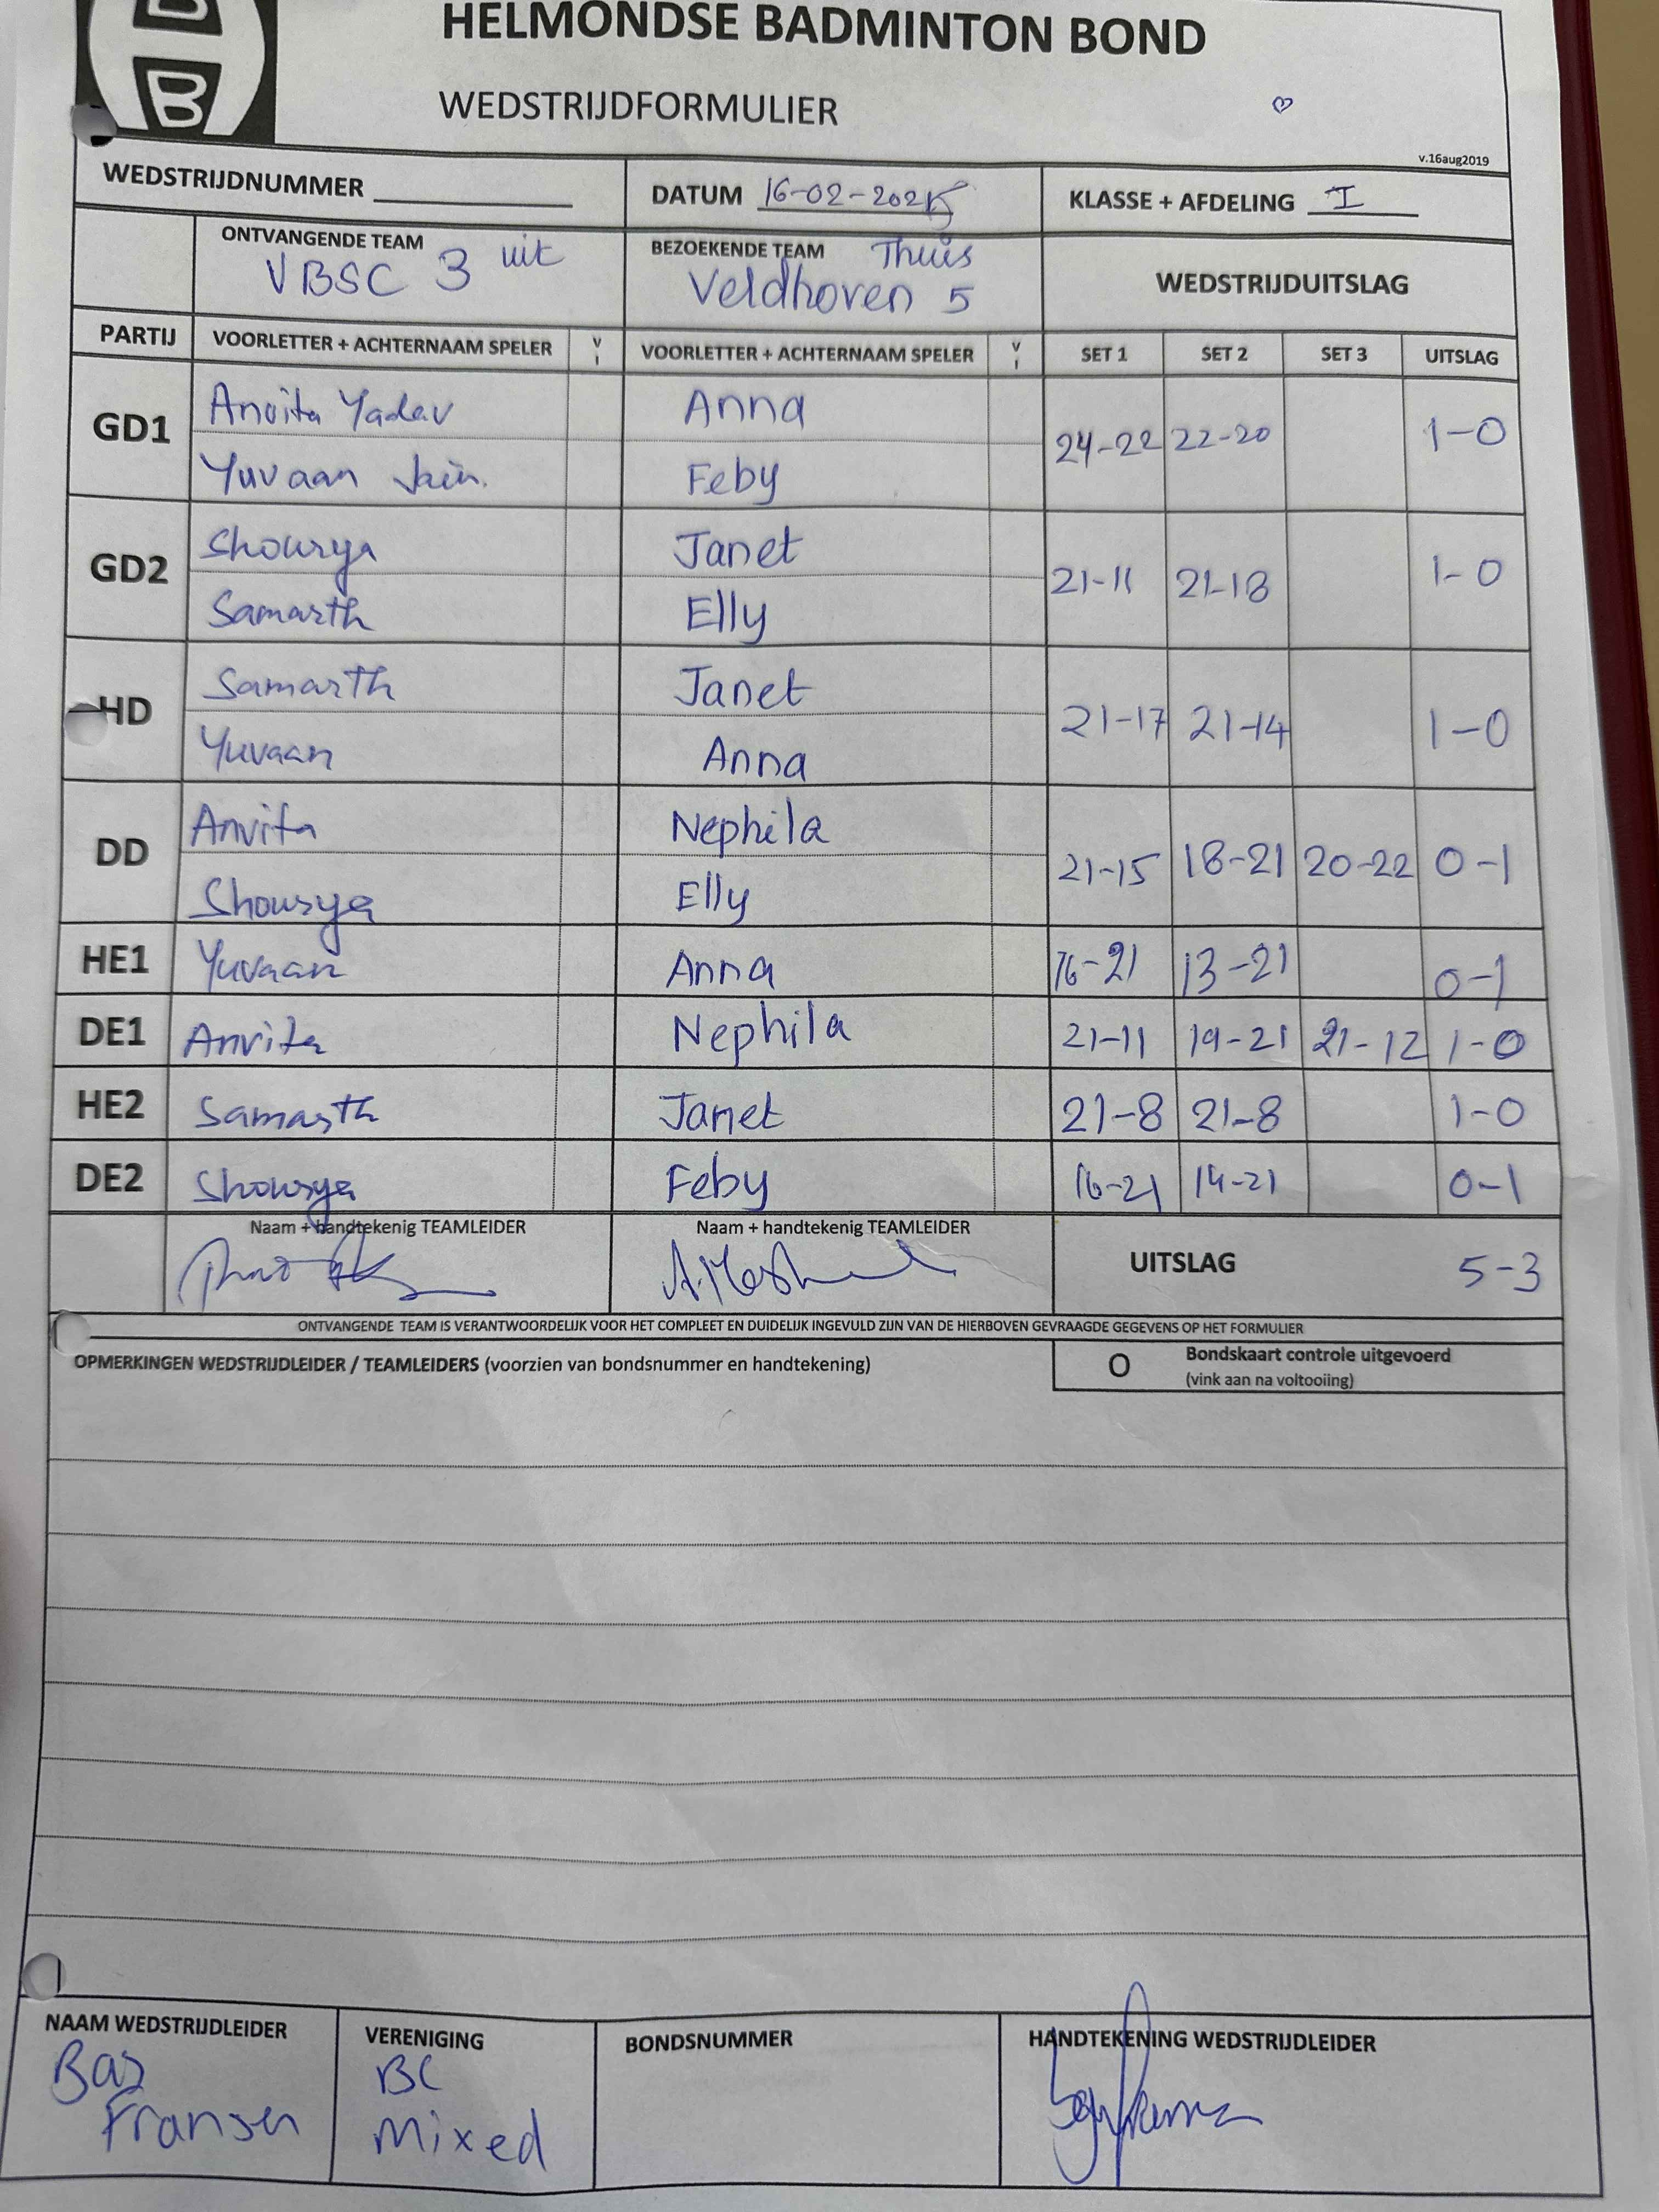 HELMONDSE BADMINTON BOND
WEDSTRIJDFORMULIER
B
v.16aug2019
WEDSTRIJDNUMMER
DATUM 16-02-2025
KLASSE + AFDELING I
ONTVANGENDE TEAM uit
VBSC 3
BEZOEKENDE TEAM Thuis
Veldhoven 5
WEDSTRIJDUITSLAG
PARTIJ VOORLETTER + ACHTERNAAM SPELER V I VOORLETTER + ACHTERNAAM SPELER V I SET 1 SET 2 SET 3 UITSLAG
GD1 Anvita Yadav Anna 24-22 22-20 1-0
Yuvaan Jain. Feby
GD2 Shourya Janet 21-11 21-18 1-0
Samarth Elly
HD Samarth Janet 21-17 21-14 1-0
Yuvaan Anna
DD Anvita Nephila 21-15 18-21 20-22 0-1
Shourya Elly
HE1 Yuvaan Anna 16-21 13-21 0-1
DE1 Anvita Nephila 21-11 19-21 21-12 1-0
HE2 Samarth Janet 21-8 21-8 1-0
DE2 Shourya Feby 16-21 14-21 0-1
Naam + handtekenig TEAMLEIDER Naam + handtekenig TEAMLEIDER
UITSLAG 5-3
ONTVANGENDE TEAM IS VERANTWOORDELIJK VOOR HET COMPLEET EN DUIDELIJK INGEVULD ZIJN VAN DE HIERBOVEN GEVRAAGDE GEGEVENS OP HET FORMULIER
OPMERKINGEN WEDSTRIJDLEIDER / TEAMLEIDERS (voorzien van bondsnummer en handtekening)
O Bondskaart controle uitgevoerd
(vink aan na voltooiing)
NAAM WEDSTRIJDLEIDER
Bas
Fransen
VERENIGING
BC
Mixed
BONDSNUMMER
HANDTEKENING WEDSTRIJDLEIDER